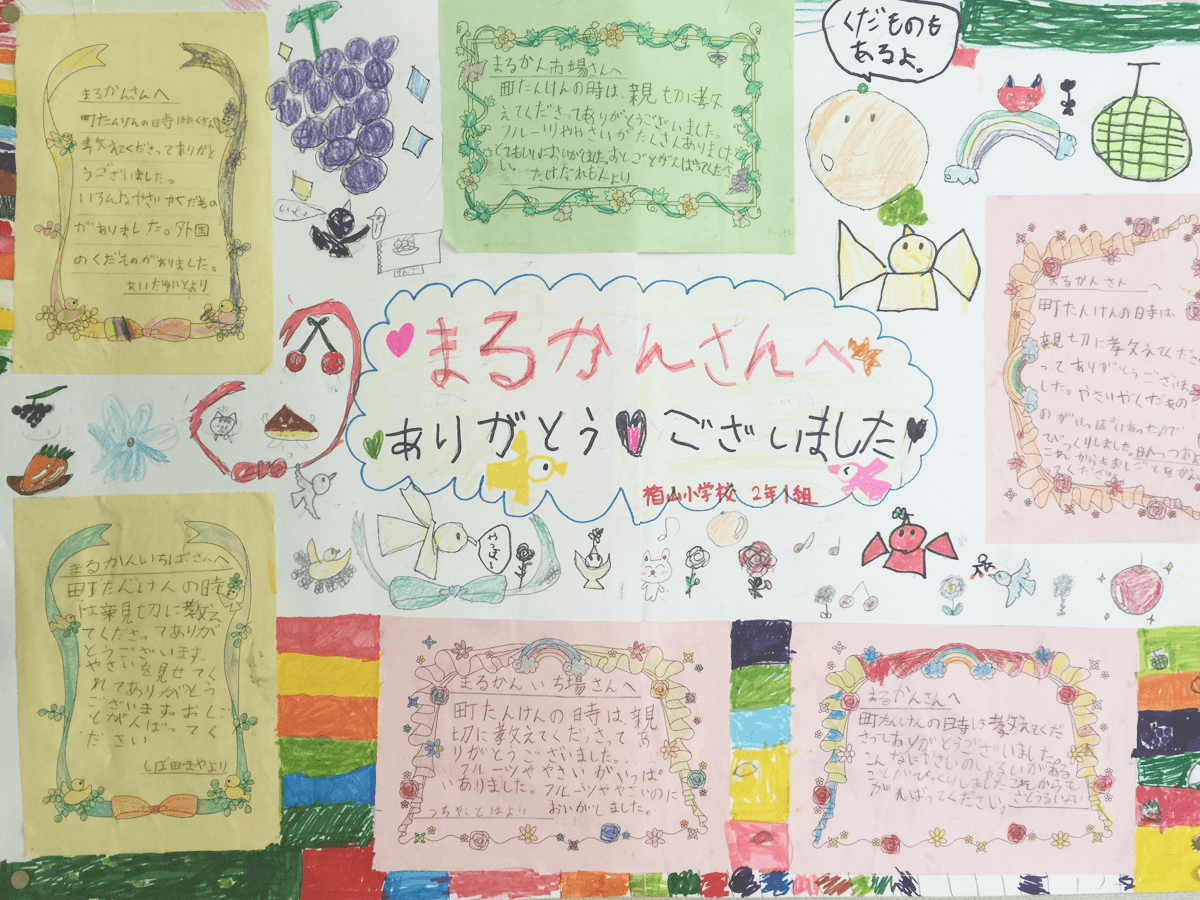 まるかんさんへ
町たんけんの日時はたくさん
教えてくださってありがと
うございました。
いろんなやさいやくだもの
がありました。外国
のくだものがありました。
まるかん市場さんへ
町たんけんの時は、親切に教
えてくださってありがとうございました。
フルーツややさいがたくさんありました。
とてもいいにおいがしました。おしごとがんばってくださ
い。
くだものも
あるよ。
まるかんさんへ
ありがとうございました
楢山小学校 2年1組
やっほー
まるかんさんへ
町たんけんの日時は、
親切に教えてくださ
ってありがとうございま
した。やさいやくだもの
がいっぱいあったので
びっくりしました。
これからもおしごとをがんば
ってください。
まるかんいちばさんへ
町たんけんの時
は親切に教え
てくださってありが
とうございます。
やさいを見せてく
れてありがとう
ございます。おしご
とがんばってく
ださい
まるかんいち場さんへ
町たんけんの日時は、親
切に教えてくださってあ
りがとうございました。
フルーツややさいがいっぱ
いありました。フルーツややさいのに
おいがしました。
まるかんさんへ
町たんけんの日時は教えてくだ
さってありがとうございました。
こんなにやさいのしゅるいがある
ことがびっくりしましたこれからも
がんばってください。